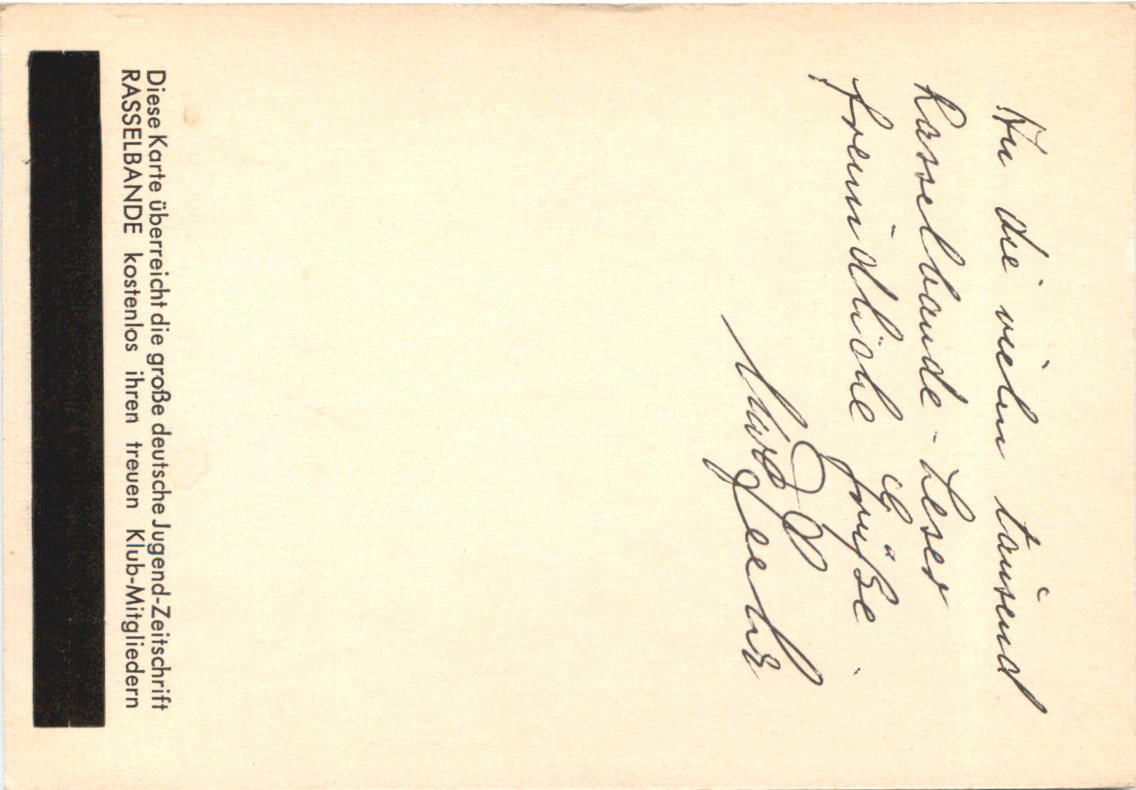 An die vielen tausend
Rasselbande-Leser
freundliche Grüße
Uwe Seeler
Diese Karte überreicht die große deutsche Jugend-Zeitschrift
RASSELBANDE kostenlos ihren treuen Klub-Mitgliedern